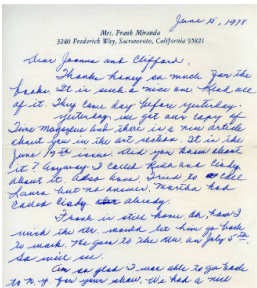 June 15, 1978
Mrs. Frank Miranda
3240 Frederick Way, Sacramento, California 95821
Dear Joanna and Clifford.
Thanks honey so much for the
books. It is such a nice one Read all
of it. They came day before yesterday.
yesterday we got our copy of
Time magazine and there is a nice article
about you in the art section. It is the
June 19th issue. Did you know about
it? Anyway I called Rina and Cindy
about it. Also Gene. Tried to call
Laura but no answer. Martha had
called Cindy already.
Frank is still home on, how I
wish the Dr. would let him go back
to work. He goes to the Dr. on July 5th.
So will see.
Am so glad I was able to go back
to N.Y. for your show. We had a nice